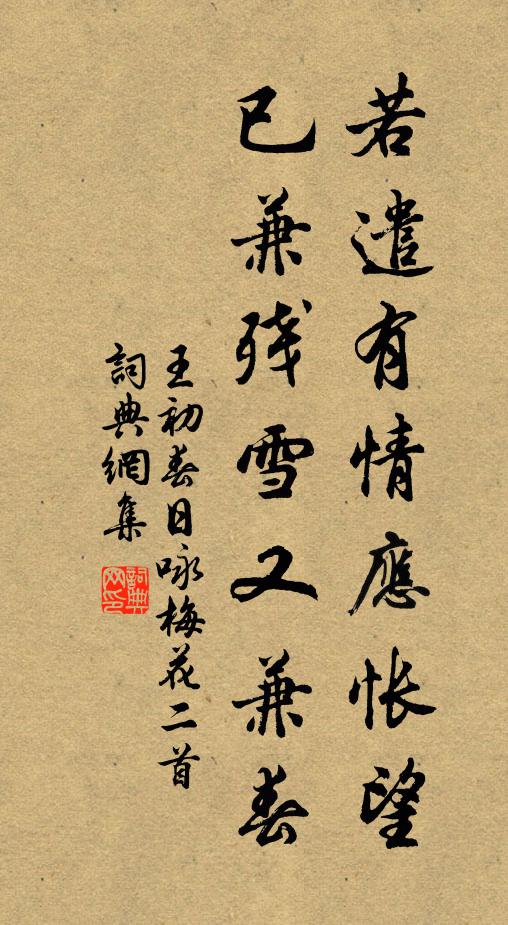 若遣有情應怅望
已兼残雪又兼春
王初春日咏梅花二首
詞典網集
詞典
网印